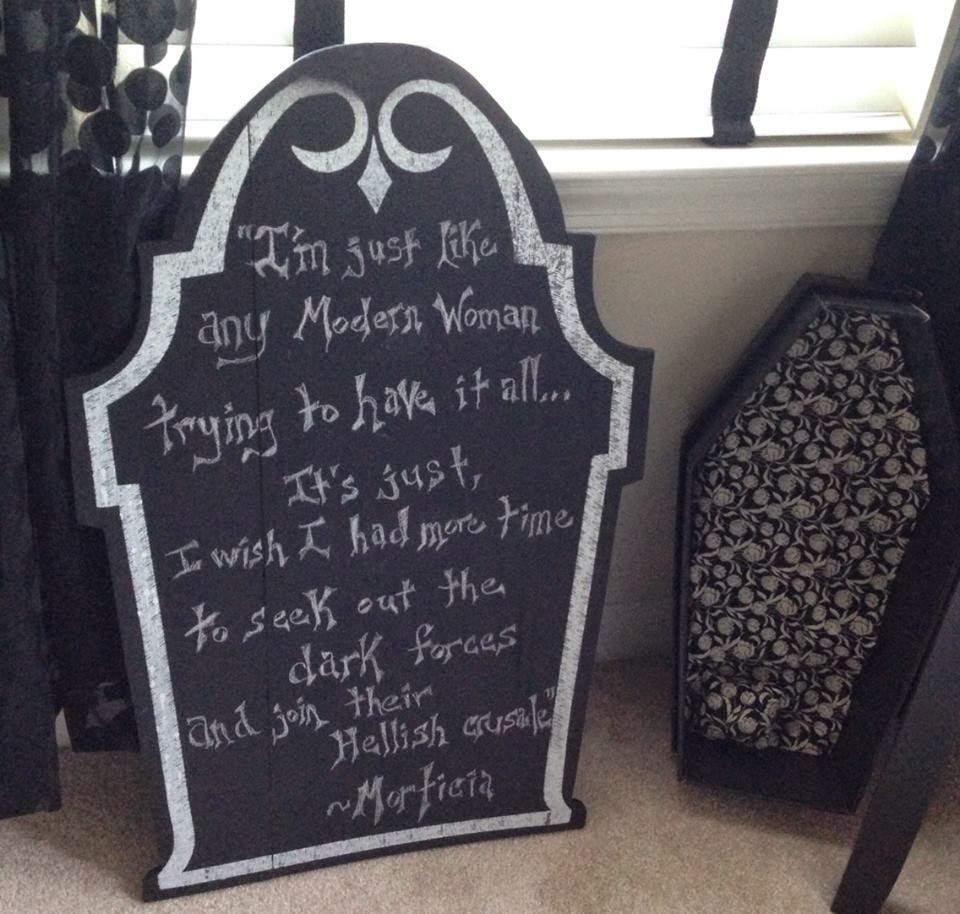 "I'm just like
any Modern Woman
trying to have it all...
It's just,
I wish I had more time
to seek out the
dark forces
and join their
Hellish crusade"
~Morticia